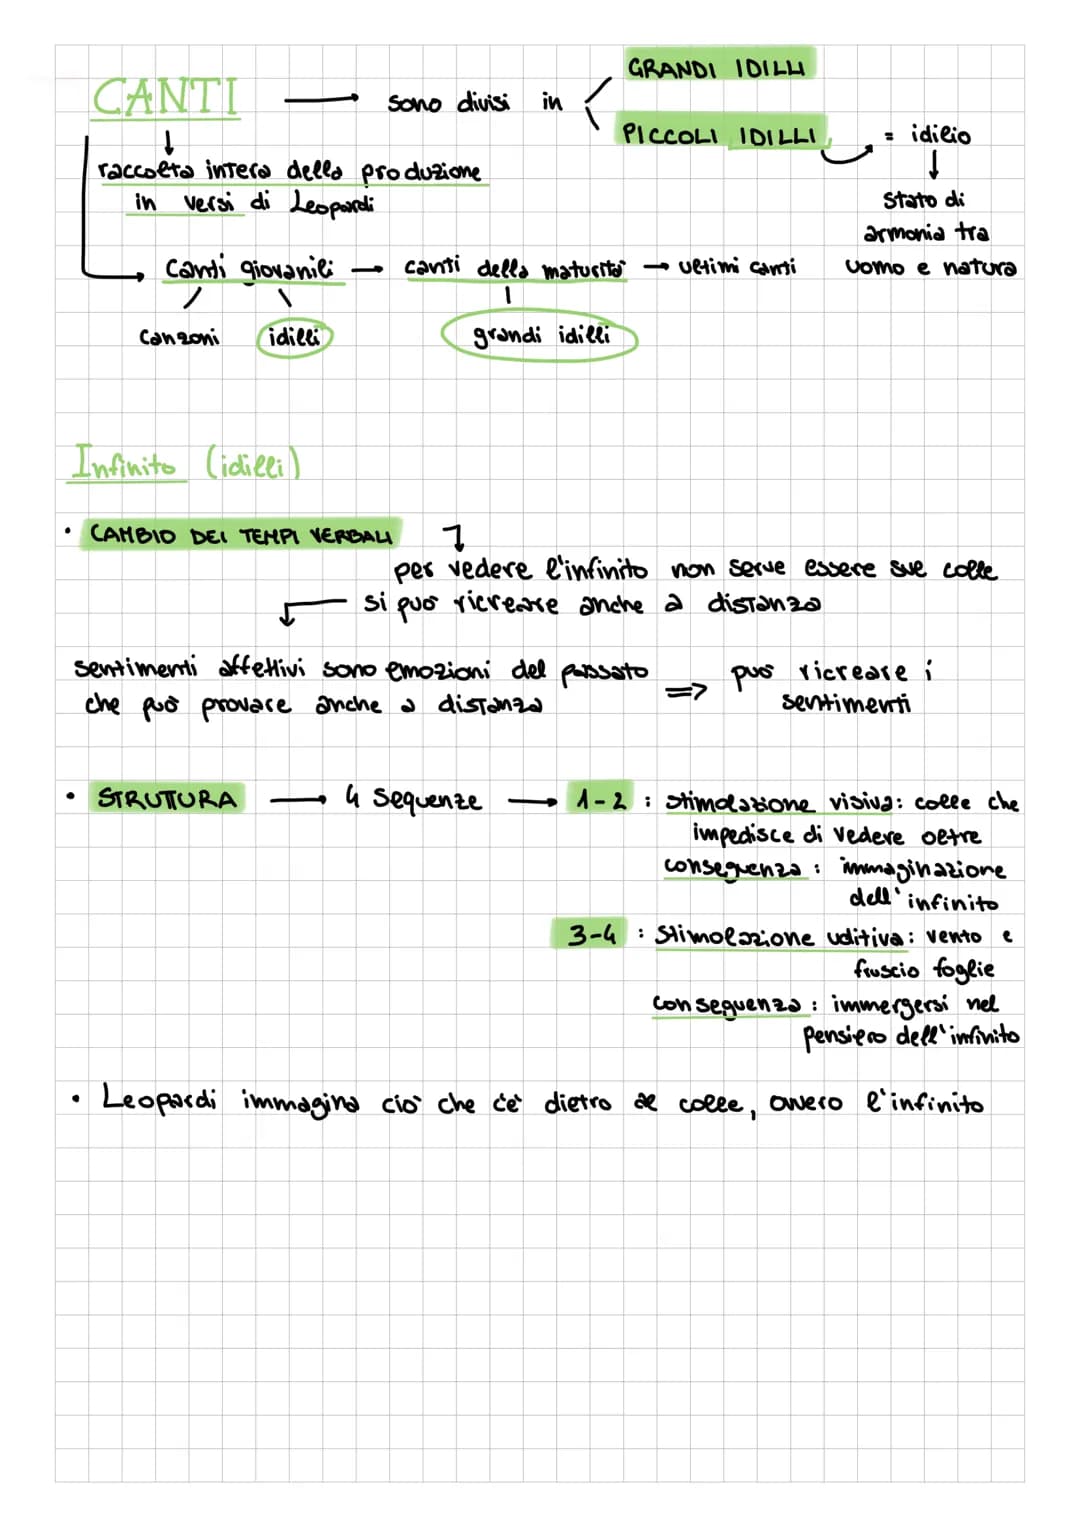 CANTI → sono divisi in
GRANDI IDILLI
PICCOLI IDILLI = idilio
↓
Stato di
armonia tra
uomo e natura
raccolta intera della produzione
in versi di Leopardi
Canti giovanili → canti della maturità → ultimi canti
canzoni idilli grandi idilli
Infinito (idilli)
• CAMBIO DEI TEMPI VERBALI
per vedere l'infinito non serve essere sul colle
si può ricreare anche a distanza
sentimenti affettivi sono emozioni del passato
che può provare anche a distanza
=> può ricreare i
sentimenti
• STRUTTURA → 4 sequenze → 1-2 : stimolazione visiva: colle che
impedisce di vedere oltre
conseguenza : immaginazione
dell'infinito
3-4 : Stimolazione uditiva: vento e
fruscio foglie
conseguenza : immergersi nel
pensiero dell'infinito
• Leopardi immagina ciò che c'è dietro al colle, ovvero l'infinito